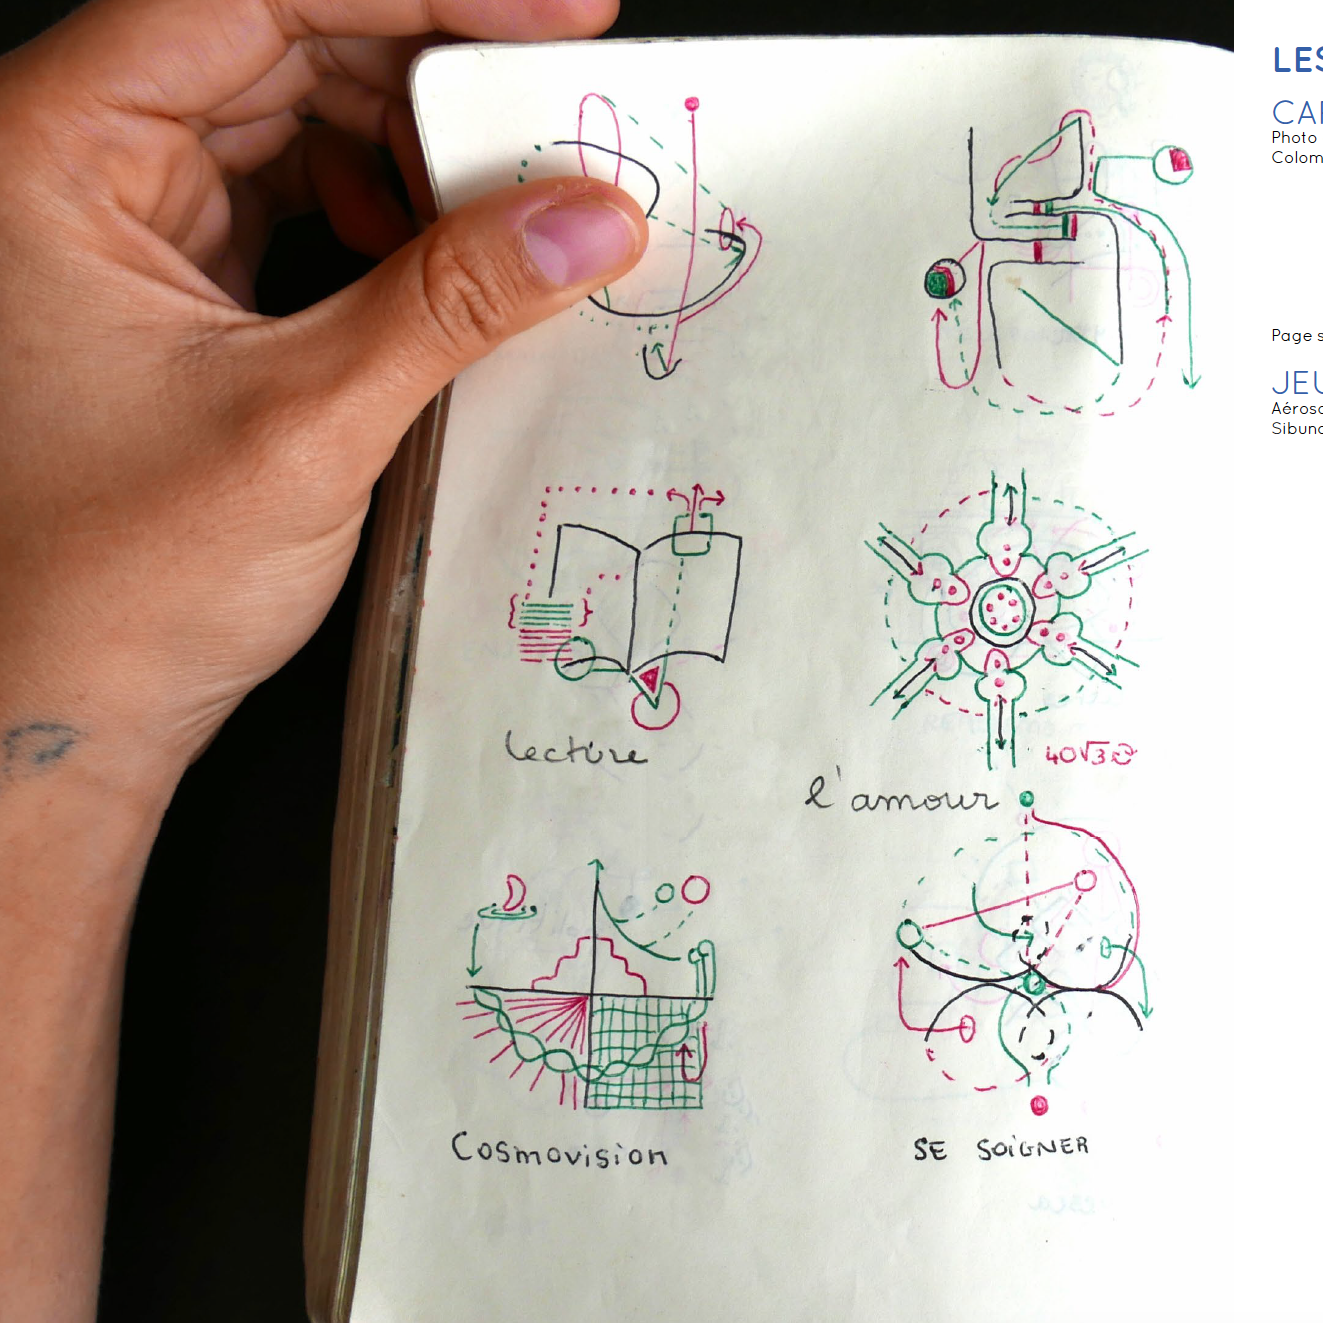 lecture
l'amour
40√3
Cosmovision
SE SOiGNER
LES
Photo
Colom
Page s
JEU
Aéroso